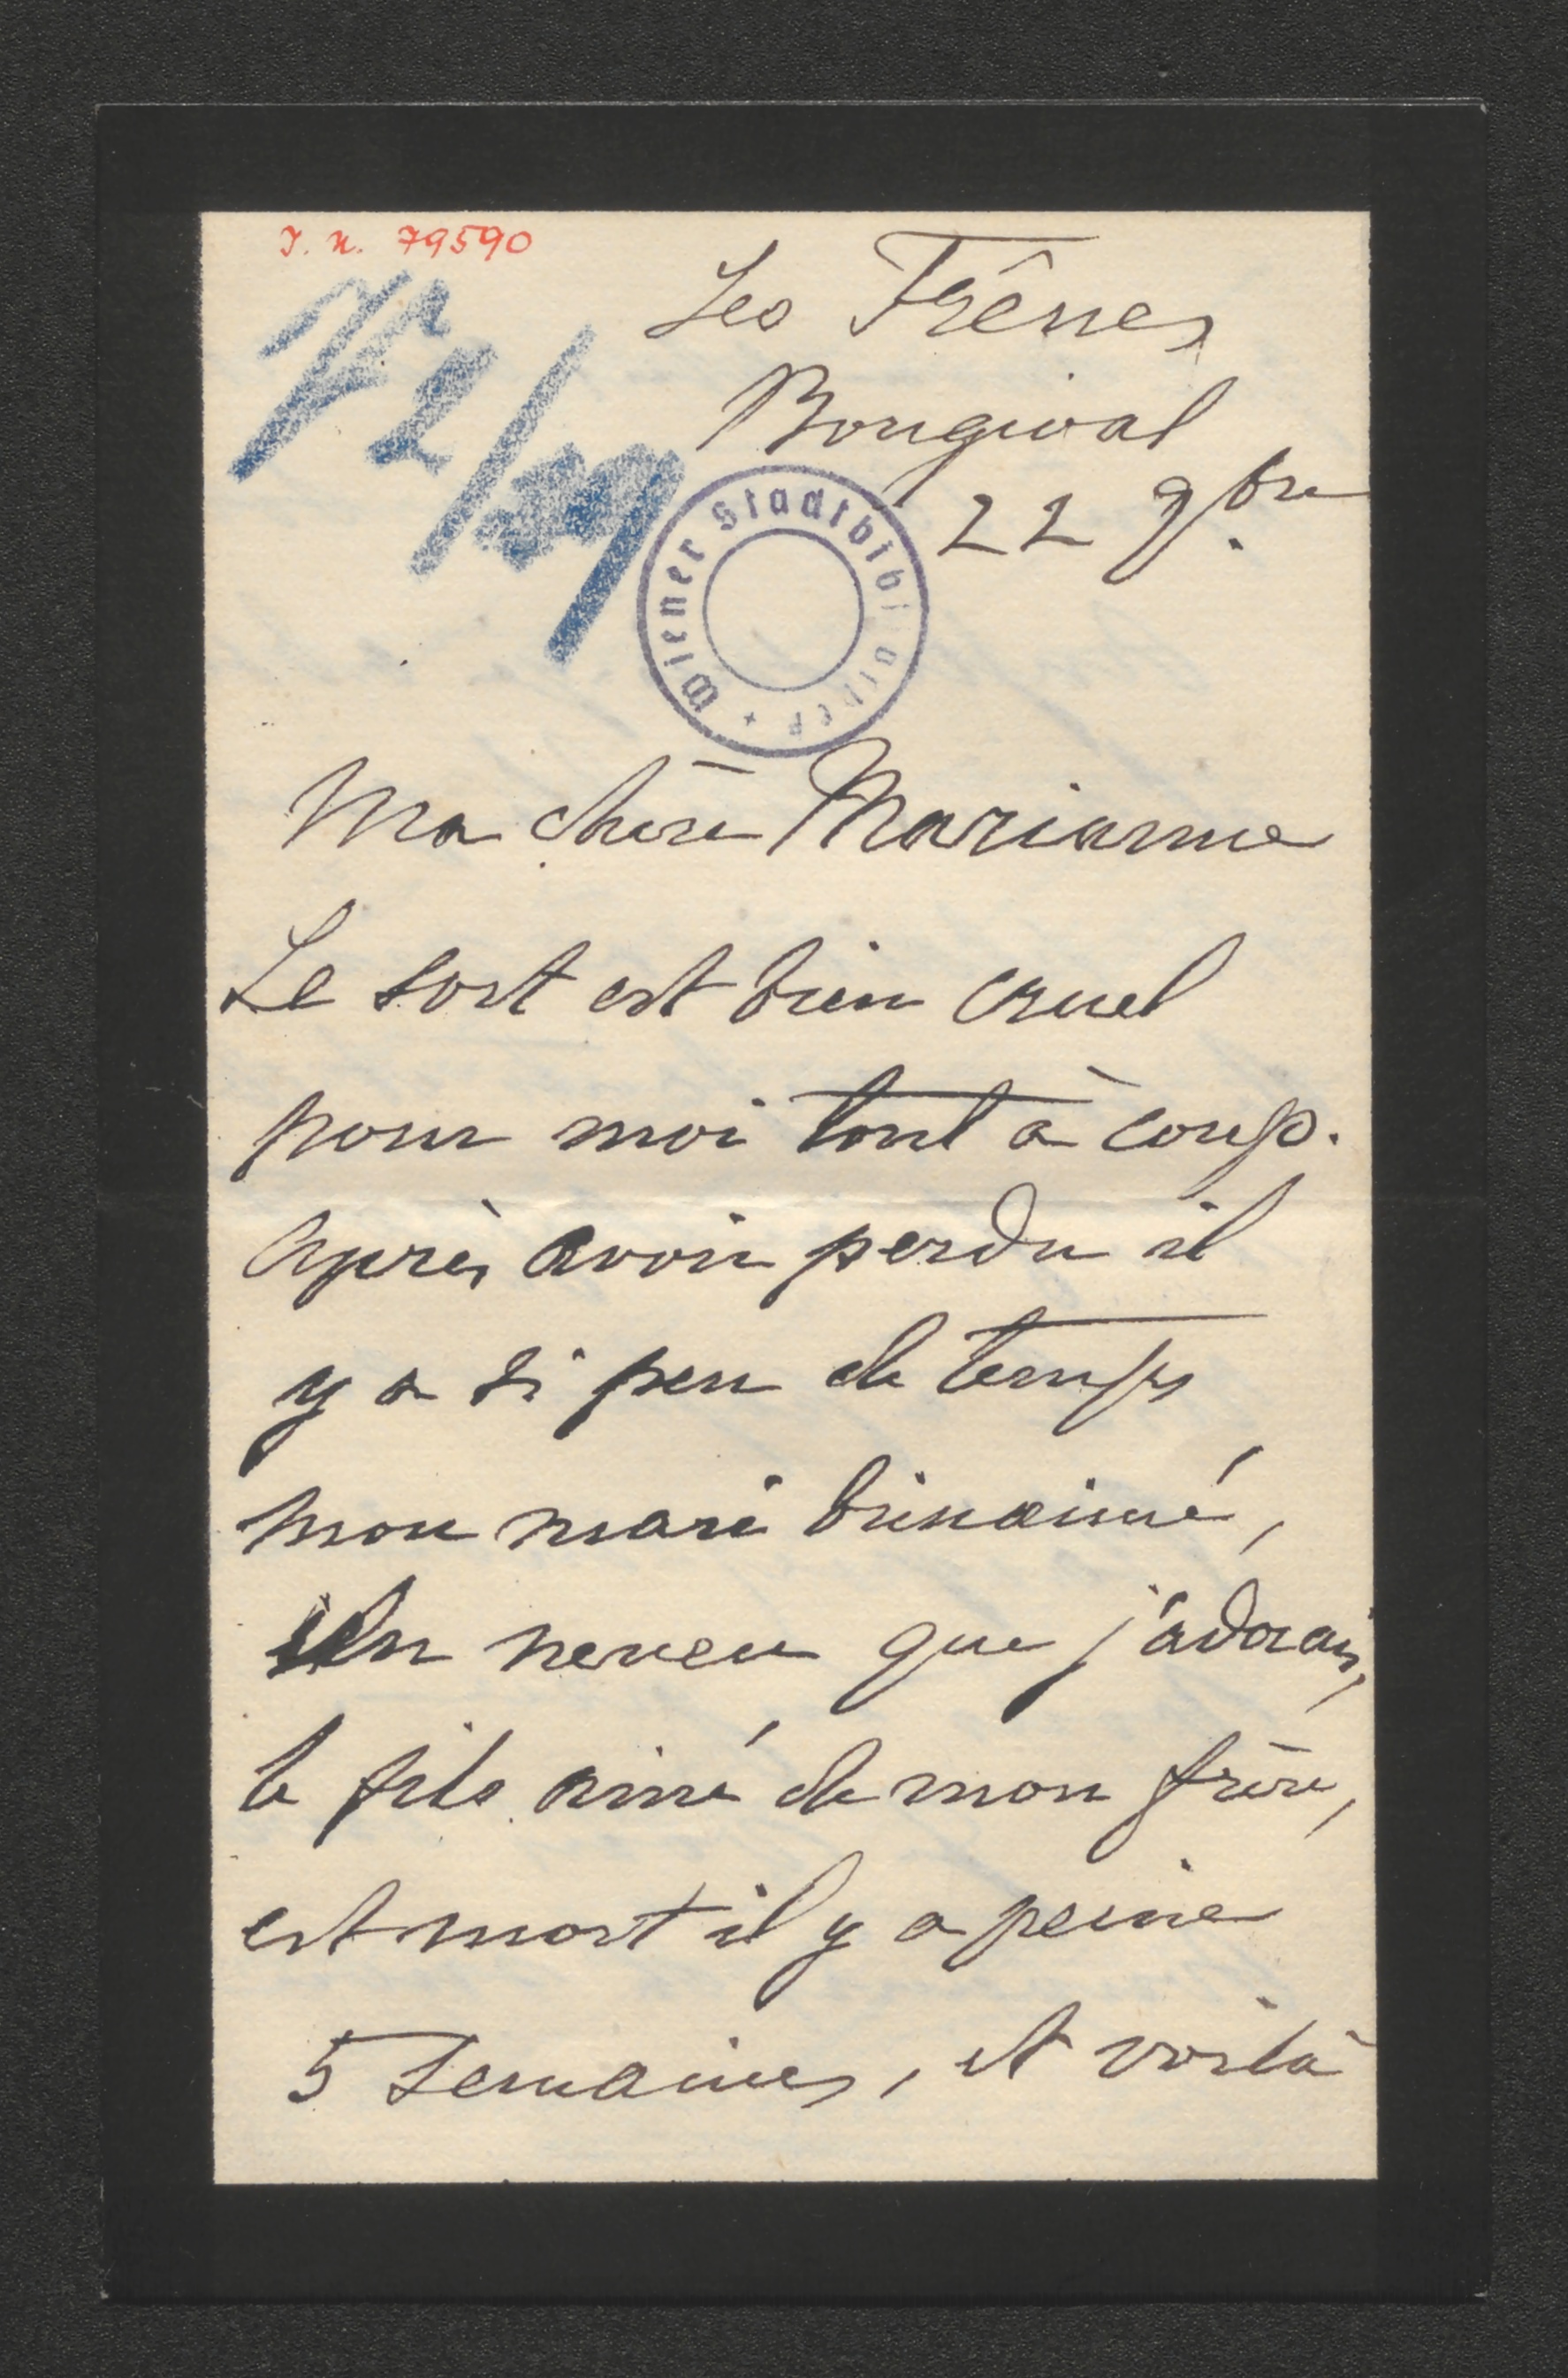 J. N. 79590
Les Frênes
Bougival
22 9bre
Wiener Stadtbibliothek
Ma chère Marianne
Le sort est bien cruel
pour moi tout à coup.
Après avoir perdu il
y a si peu de temps
mon mari bienaimé,
Un neveu que j'adorais,
le fils ainé de mon frère,
est mort il y a peine
5 Semaines, et voilà